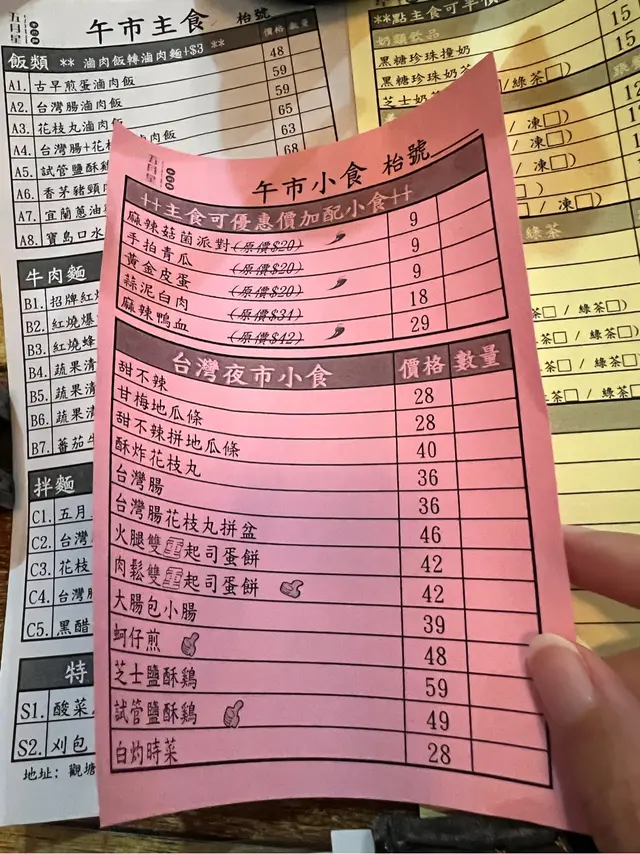 五月星
午市主食 枱號
飯類 ** 滷肉飯轉滷肉麵+$3 ** 價格 數量
A1. 古早煎蛋滷肉飯 48
A2. 台灣腸滷肉飯 59
A3. 花枝丸滷肉飯 59
A4. 台灣腸+花 肉飯 65
A5. 試管鹽酥雞 63
A6. 香茅豬頸 68
A7. 宜蘭蔥油
A8. 寶島口水
牛肉麵
B1. 招牌紅
B2. 紅燒爆
B3. 紅燒蜂
B4. 蔬果清
B5. 蔬果清
B6. 蔬果清
B7. 蕃茄牛
拌麵
C1. 五月
C2. 台灣
C3. 花枝
C4. 台灣
C5. 黑醋
特
S1. 酸菜
S2. 刈包
地址: 觀塘
**點主食可半價
奶類飲品
黑糖珍珠撞奶 15
黑糖珍珠奶 15
芝士奶 /綠茶□)
/ 凍□)
/ 凍□)
/ 凍□)
綠茶
茶□ / 綠茶□)
茶□ / 綠茶□)
茶□ / 綠茶□)
茶□ / 綠茶□)
五月星
午市小食 枱號
++主食可優惠價加配小食++
麻辣菇菌派對(原價$20) 9
手拍青瓜 (原價$20) 9
黃金皮蛋 (原價$20) 9
蒜泥白肉 (原價$31) 18
麻辣鴨血 (原價$42) 29
台灣夜市小食 價格 數量
甜不辣 28
甘梅地瓜條 28
甜不辣拼地瓜條 40
酥炸花枝丸 36
台灣腸 36
台灣腸花枝丸拼盆 46
火腿雙起司蛋餅 42
肉鬆雙起司蛋餅 42
大腸包小腸 39
蚵仔煎 48
芝士鹽酥鷄 59
試管鹽酥鷄 49
白灼時菜 28